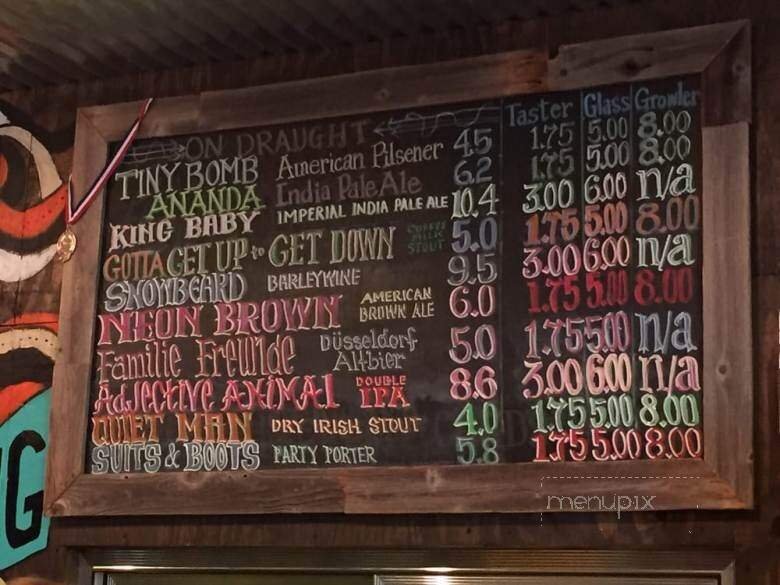 ON DRAUGHT Taster Glass Growler
TINY BOMB American Pilsener 4.5 1.75 5.00 8.00
ANANDA India Pale Ale 6.2 1.75 5.00 8.00
KING BABY IMPERIAL INDIA PALE ALE 10.4 3.00 6.00 n/a
GOTTA GET UP to GET DOWN COFFEE MILK STOUT 5.0 1.75 5.00 8.00
SNOWBEARD BARLEYWINE 9.5 3.00 6.00 n/a
NEON BROWN AMERICAN BROWN ALE 6.0 1.75 5.00 8.00
Familie Freunde Düsseldorf Altbier 5.0 1.75 5.00 n/a
Adjective ANIMAL DOUBLE IPA 8.6 3.00 6.00 n/a
QUIET MAN DRY IRISH STOUT 4.0 1.75 5.00 8.00
SUITS & BOOTS PARTY PORTER 5.8 1.75 5.00 8.00
G
menupix